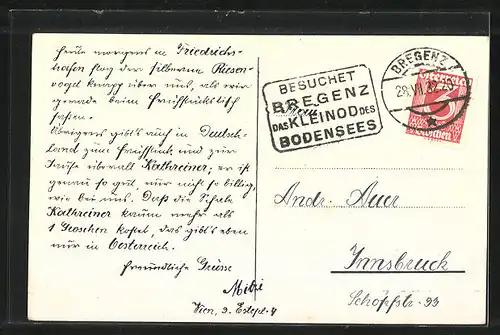 Heute morgens in Friedrichs-
hafen flog der silberne Riesen-
vogel knapp über uns, als wir
gerade beim Frühstückstisch
saßen.
Übrigens gibt's auch in Deutsch-
land zum Frühstück und zur
Jause überall Kathreiner, er ist
genau so gut, nur nicht so billig,
wie bei uns. Daß die Schale
Kathreiner kaum mehr als
1 Groschen kostet, das gibt's eben
nur in Oesterreich.
Freundliche Grüsse
Mitzi
Wien, 9.
BESUCHET
BREGENZ
DAS KLEINOD DES
BODENSEES
BREGENZ 1
28.VII.32
Österreich
Groschen
Frau
Andr. Auer
Innsbruck
Schöpfstr. 93